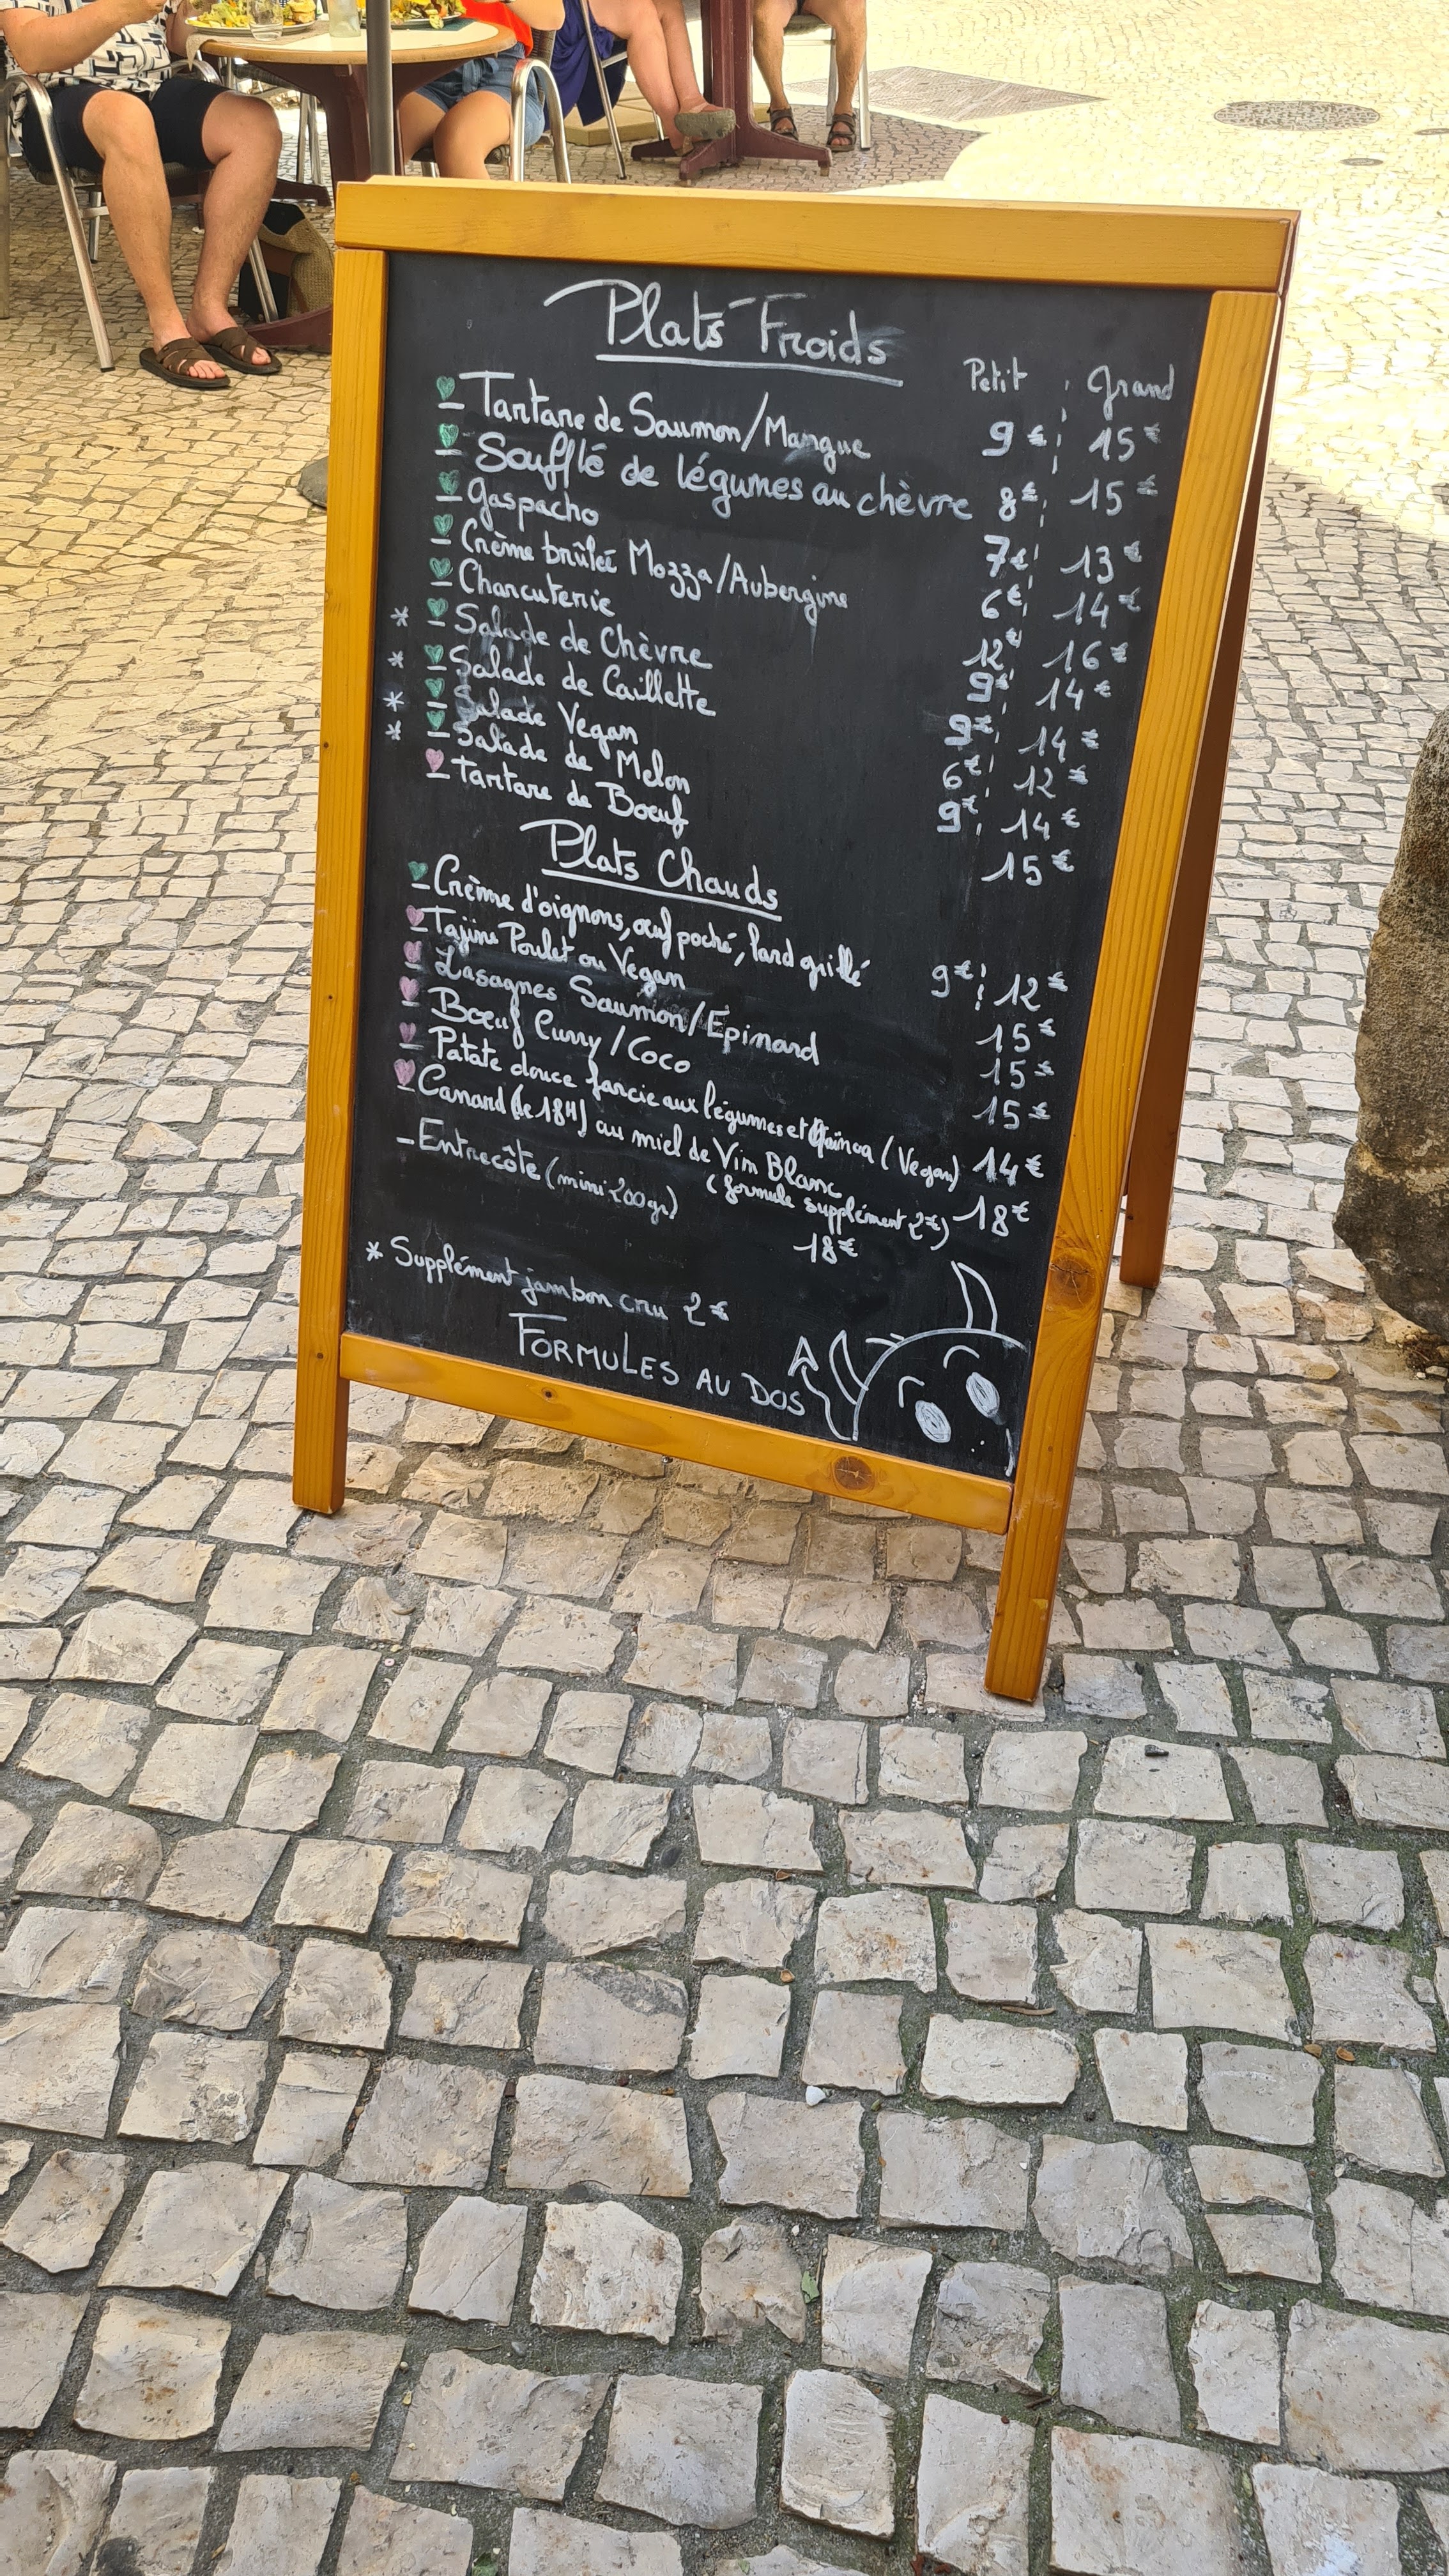 Plats Froids
Petit Grand
- Tartare de Saumon/Mangue 9€ 15€
- Soufflé de légumes au chèvre 8€ 15€
- Gaspacho 7€ 13€
- Crème brûlée Mozza/Aubergine 6€ 14€
- Charcuterie 12€ 16€
* - Salade de Chèvre 9€ 14€
* - Salade de Caillette 9€ 14€
* - Salade Vegan 6€ 12€
* - Salade de Melon 9€ 14€
- Tartare de Bœuf 15€
Plats Chauds
- Crème d'oignons, œuf poché, lard grillé 9€ 12€
- Tajine Poulet ou Vegan 15€
- Lasagnes Saumon/Epinard 15€
- Bœuf Curry/Coco 15€
- Patate douce farcie aux légumes et Quinoa (Vegan) 14€
- Canard (de 18H) au miel de Vin Blanc 18€
(formule supplément 2€)
- Entrecôte (mini 200gr) 18€
* Supplément jambon cru 2€
FORMULES AU DOS